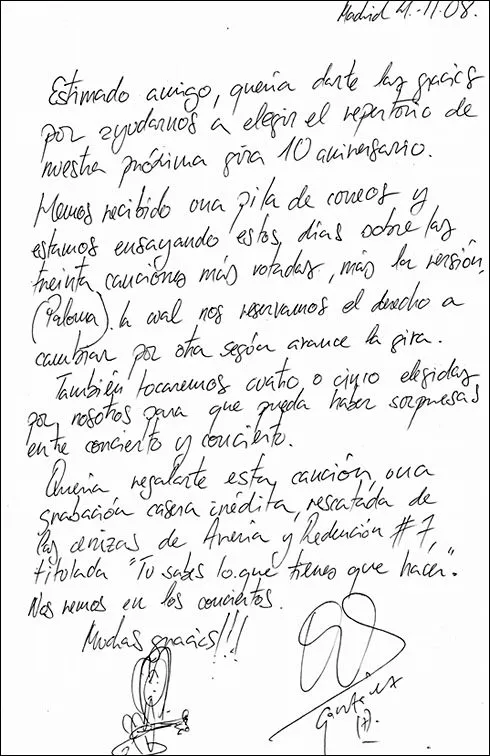 Madrid 21-11-08.
Estimado amigo, quería darte las gracias
por ayudarnos a elegir el repertorio de
nuestra próxima gira 10 aniversario.
Hemos recibido una pila de correos y
estamos ensayando estos días sobre las
treinta canciones más votadas, más la versión,
(Paloma), la cual nos reservamos el derecho a
cambiar por otra según avance la gira.
También tocaremos cuatro o cinco elegidas
por nosotros para que pueda haber sorpresas
entre concierto y concierto.
Quería regalarte esta canción, una
grabación casera inédita, rescatada de
las cenizas de Avería y Redención #7,
titulada "Tu sabes lo que tienes que hacer".
Nos vemos en los conciertos.
Muchas gracias!!!